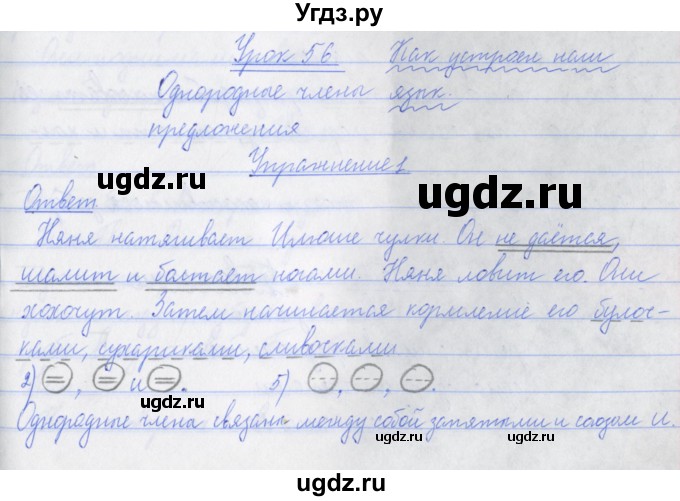 Угдз.ру
Урок 56. Как устроен наш
Однородные члены язык.
предложения
Упражнение 1
Ответ.
Няня натягивает Илюше чулки. Он не даётся,
шалит и болтает ногами. Няня ловит его. Они
хохочут. Затем начинается кормление его булоч-
ками, сухариками, сливочками
2) , и . 5) , , .
Однородные члены связаны между собой запятыми и союзом и.
ugdz.ru
ugdz.ru
ugdz.ru
ugdz.ru
ugdz.ru
ugdz.ru